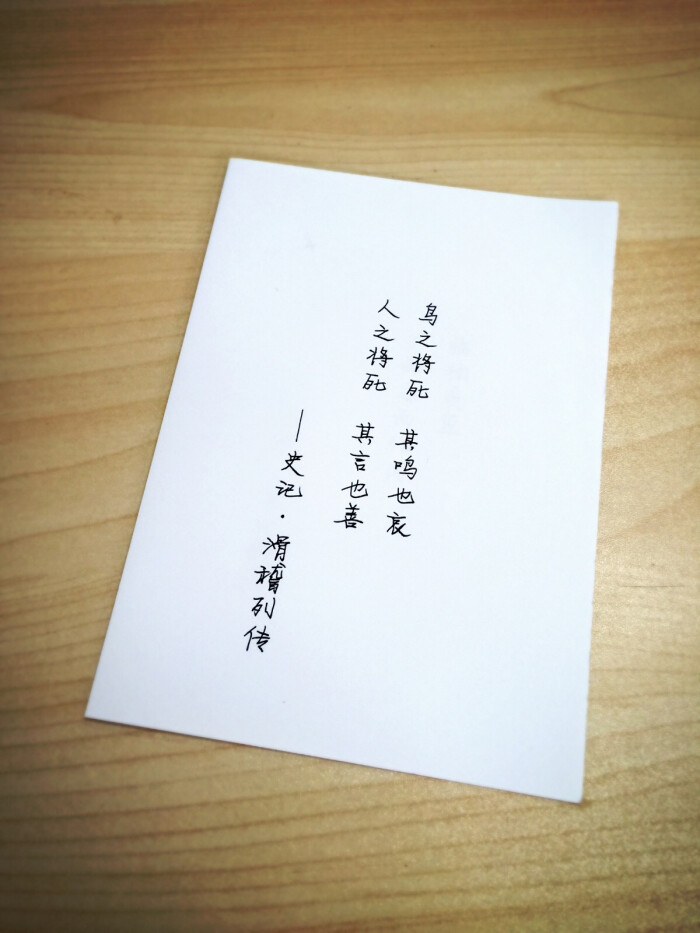 鸟之将死 其鸣也哀
人之将死 其言也善
——史记·滑稽列传